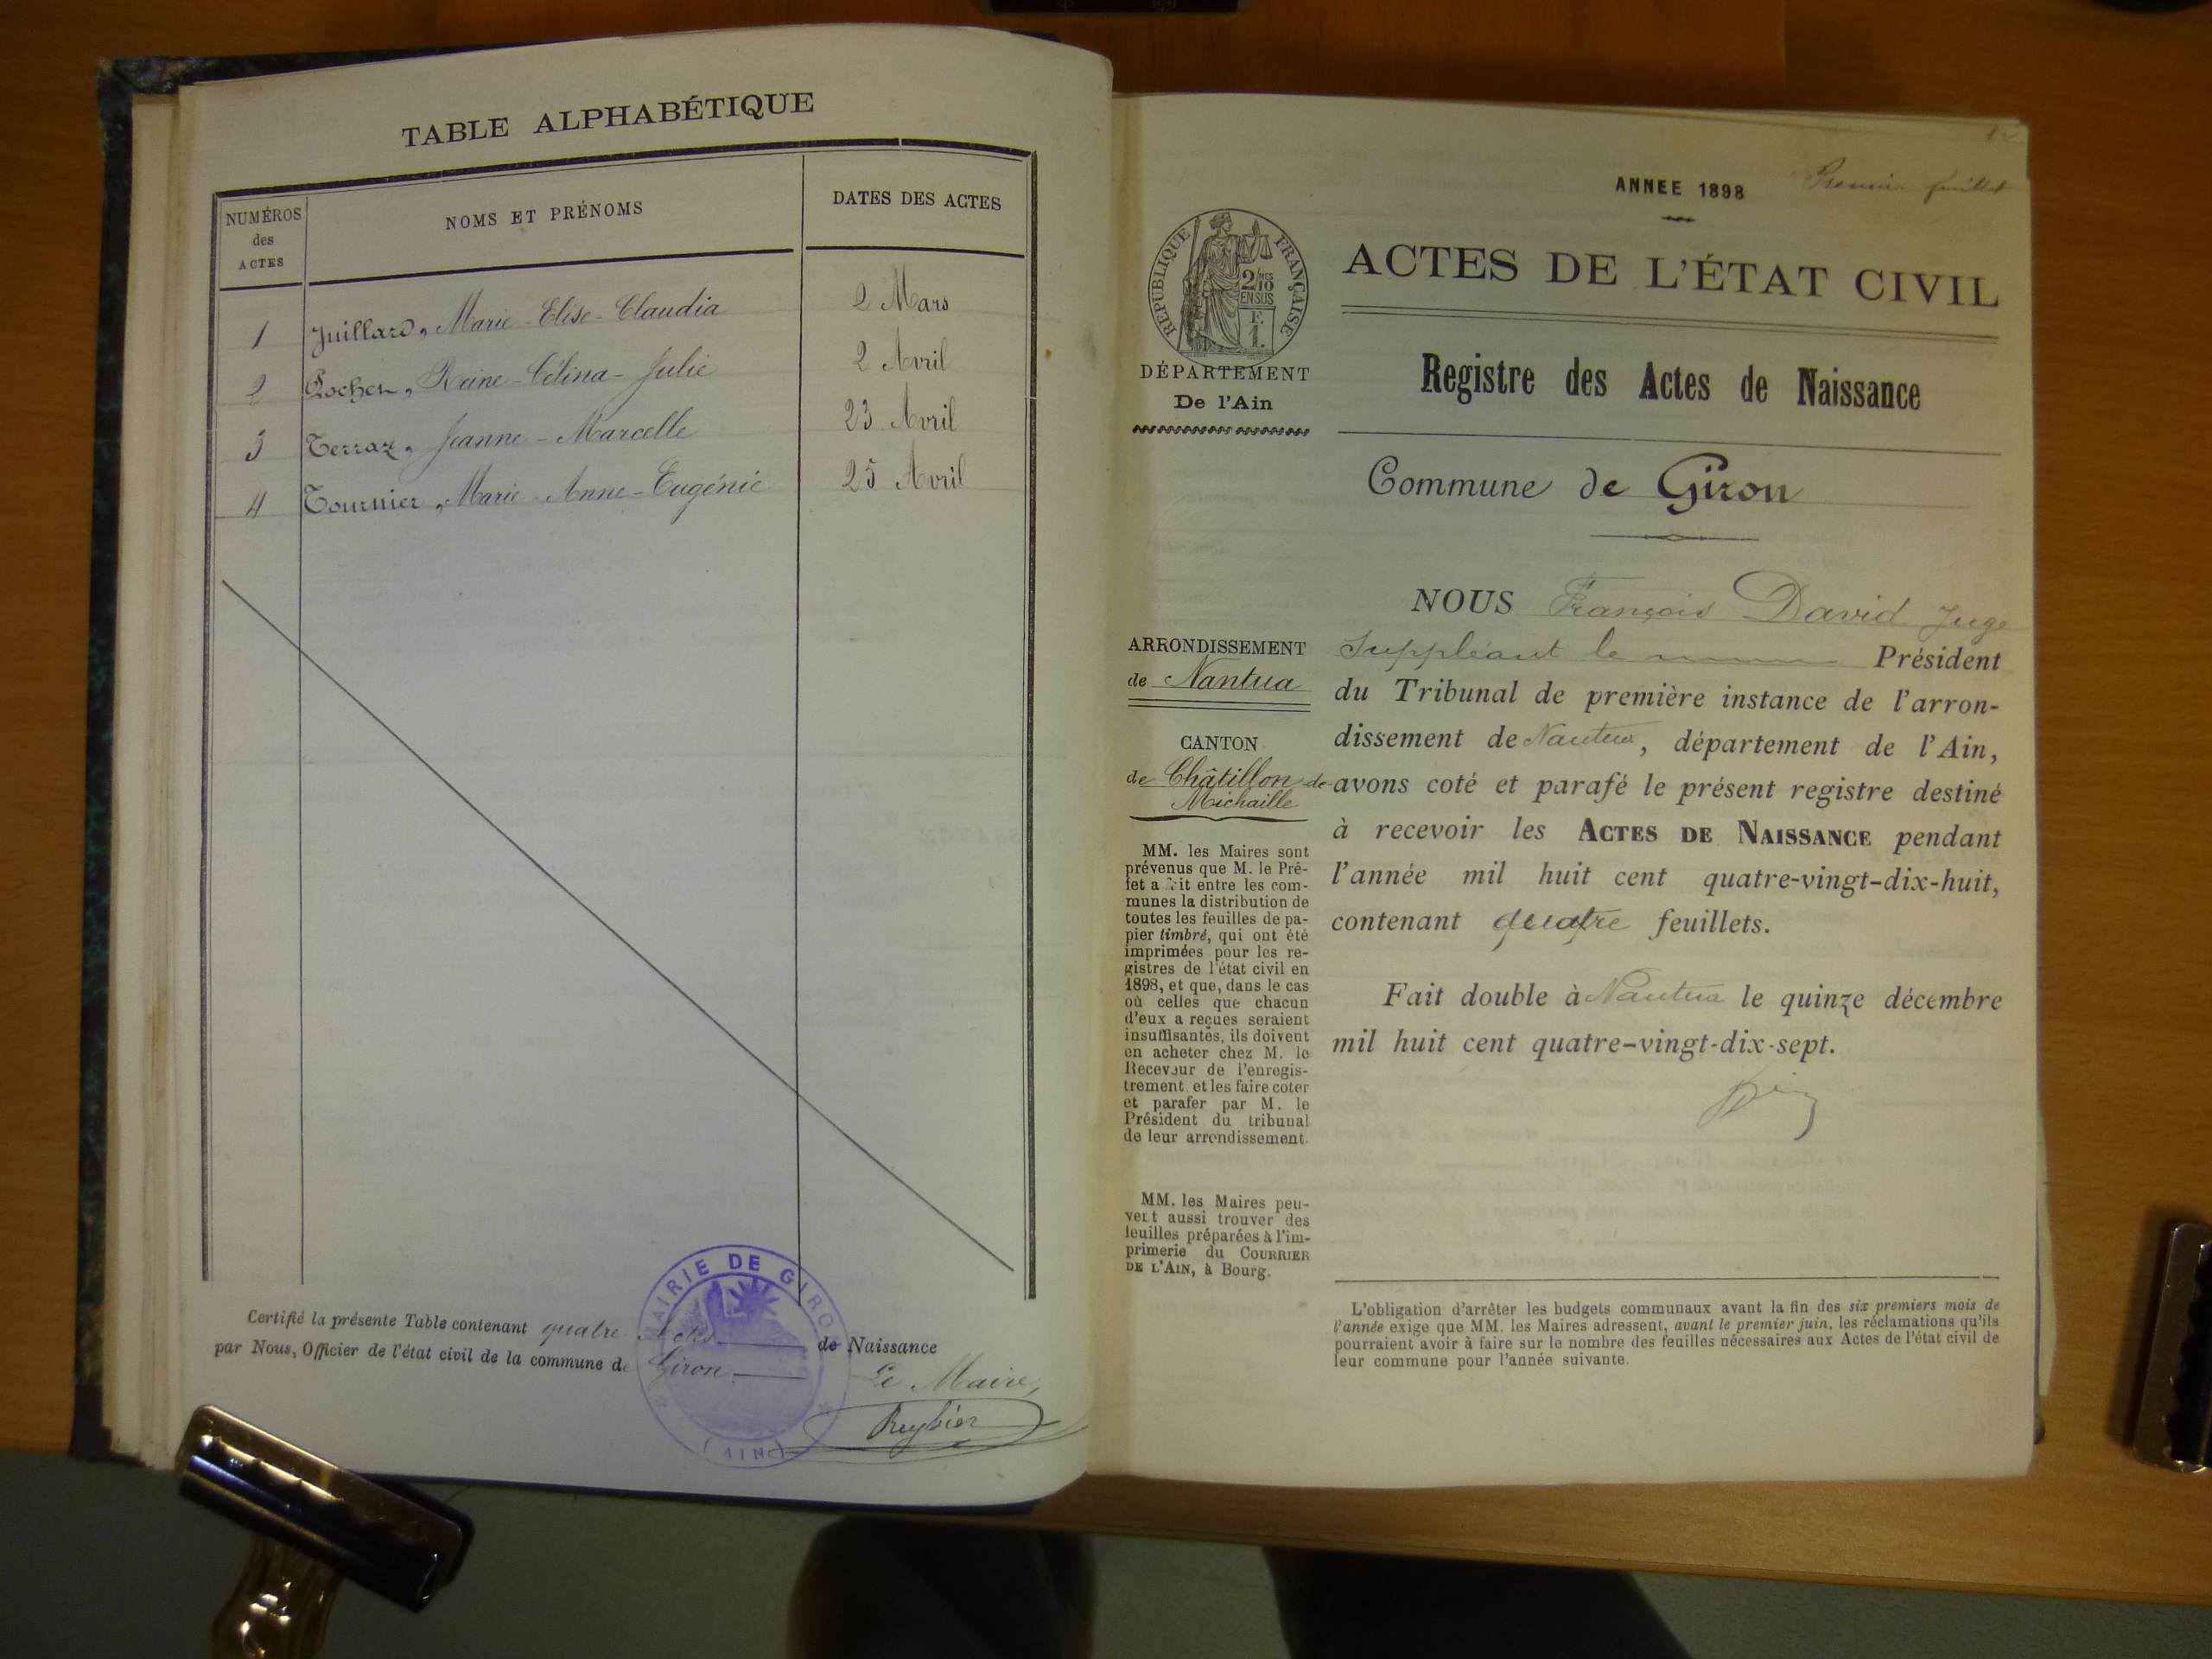 TABLE ALPHABÉTIQUE
NUMÉROS des ACTES
NOMS ET PRÉNOMS
DATES DES ACTES
1 Juillard, Marie-Elise-Claudia 2 Mars
2 Rochex, Reine-Célina-Julie 2 Avril
3 Terraz, Jeanne-Marcelle 23 Avril
4 Tournier, Marie-Anne-Eugénie 25 Avril
Certifié la présente Table contenant quatre Actes de Naissance
par Nous, Officier de l'état civil de la commune de Giron
Le Maire,
MAIRIE DE GIRON
(AIN)
Premier feuillet
ANNEE 1898
ACTES DE L'ÉTAT CIVIL
RÉPUBLIQUE FRANÇAISE
2/10 MES
EN SUS
F.
1.
DÉPARTEMENT
De l'Ain
Registre des Actes de Naissance
Commune de Giron
ARRONDISSEMENT
de Nantua
CANTON
de Châtillon-de-
Michaille
MM. les Maires sont
prévenus que M. le Pré-
fet a fait entre les com-
munes la distribution de
toutes les feuilles de pa-
pier timbré, qui ont été
imprimées pour les re-
gistres de l'état civil en
1898, et que, dans le cas
où celles que chacun
d'eux a reçues seraient
insuffisantes, ils doivent
en acheter chez M. le
Receveur de l'enregis-
trement, et les faire coter
et parafer par M. le
Président du tribunal
de leur arrondissement.
MM. les Maires peu-
vent aussi trouver des
feuilles préparées à l'im-
primerie du COURRIER
DE L'AIN, à Bourg.
NOUS François David Juge
Suppléant le Président
du Tribunal de première instance de l'arron-
dissement de Nantua, département de l'Ain,
avons coté et parafé le présent registre destiné
à recevoir les ACTES DE NAISSANCE pendant
l'année mil huit cent quatre-vingt-dix-huit,
contenant quatre feuillets.
Fait double à Nantua le quinze décembre
mil huit cent quatre-vingt-dix-sept.
L'obligation d'arrêter les budgets communaux avant la fin des six premiers mois de
l'année exige que MM. les Maires adressent, avant le premier juin, les réclamations qu'ils
pourraient avoir à faire sur le nombre des feuilles nécessaires aux Actes de l'état civil de
leur commune pour l'année suivante.